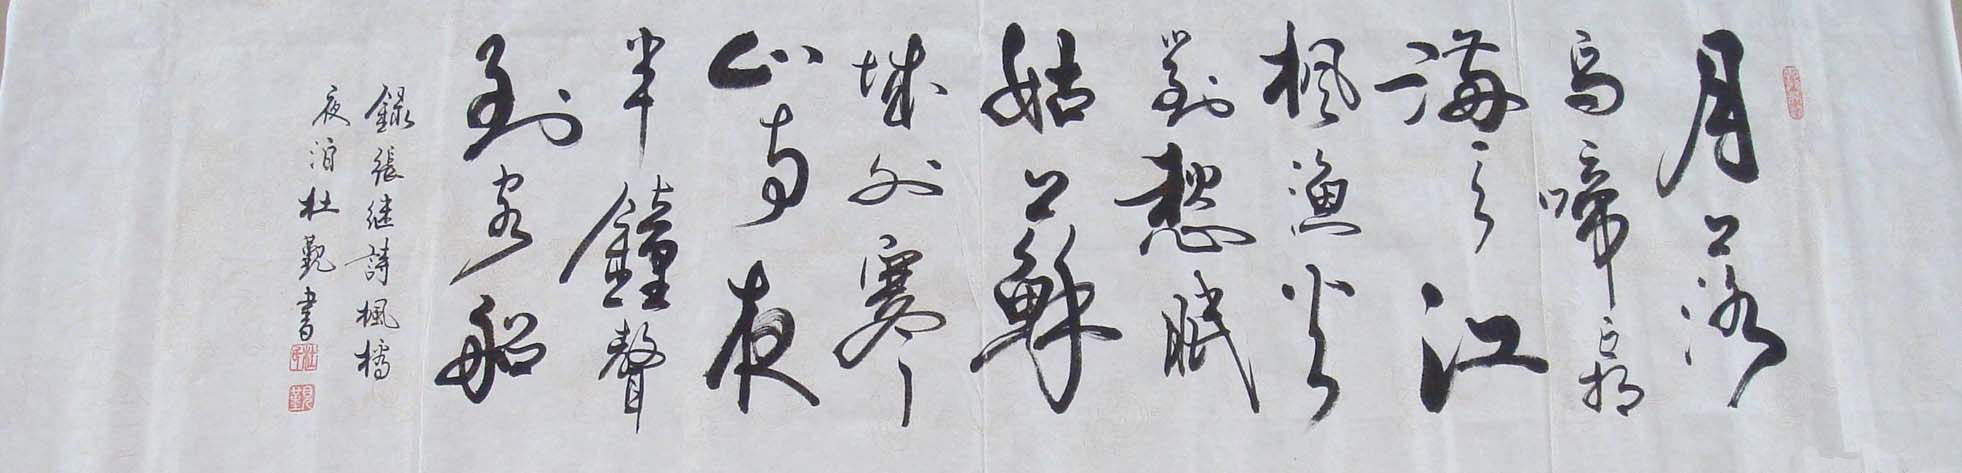 月落
烏啼霜
滿天江
枫渔火
對愁眠
姑蘇
城外寒
山寺夜
半鐘聲
到客船
録張继詩楓橋
夜泊杜觐書